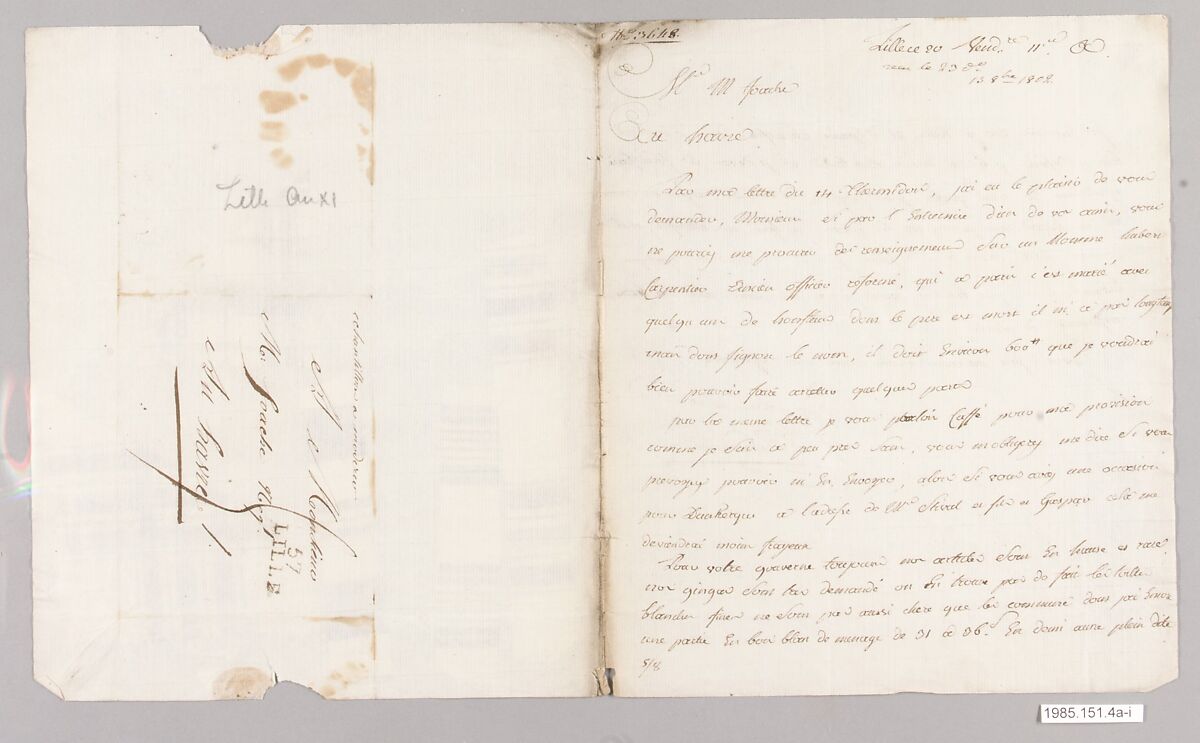 Lille an XI
echantillons a moderer
A Monsieur
Mr Foache negt
Au havre /.
57
LILLE
Lille ce 20 Vendre 11e
recu le 23 do
13 8bre 1802
Mr M foache
Au havre
Par ma lettre du 14 Thermidor, j'ai eu le plaisir de vous
demander, Monsieur si par l'Entremise d'un de vos amis, vous
ne pouriez me procurer des renseignemens Sur un Nommé hubert
Carpentier Ancien officier reformé, qui a paris c'est marié avec
quelqu'un de honfleur dont le pere est mort il n'i a pas longtemps
mais dont j'ignore le nom, il doit Environ 600tt que je voudrai
bien pouvoir faire arreter quelque part
par la meme lettre je vous parlois Caffé pour ma provision
comme je Suis a peu pres Sans, vous m'obligerez me dire Si vous
prevoyez pouvoir m'En Envoyer, alors Si vous avez une occasion
pour Dunkerque a l'adresse de Mr Stival et fils et Gaspar cela me
deviendrai moins frayeux
Pour votre gouverne toujours nos articles Sont En hausse et rare
nos gingas Sont tres demandé on En trouve pas de fait les toilles
blanches fines ne Sont pas aussi chere que les commune dont j'ai Envoi
une partie En bon blan de menage de 31 a 36 s. En demi aune plein dite
5/8
1985.151.4a-i